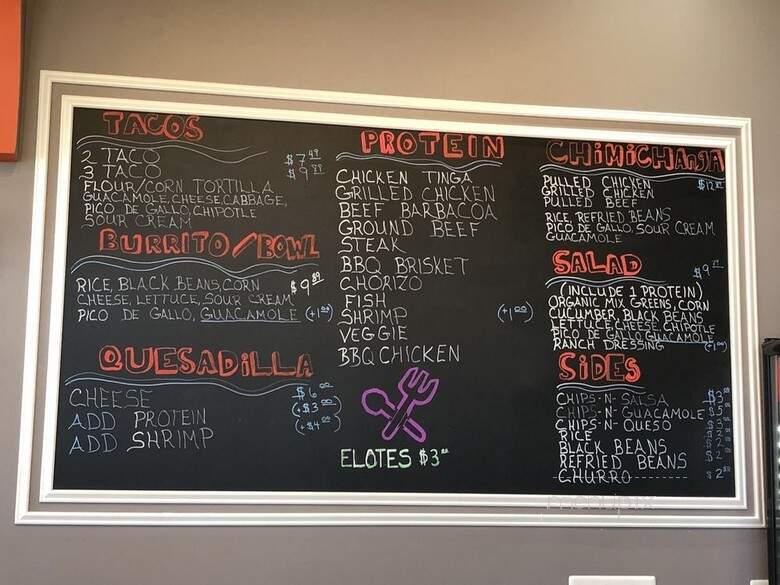 TACOS
2 TACO $7 49
3 TACO $9
FLOUR/CORN TORTILLA
GUACAMOLE, CHEESE, CABBAGE,
PICO DE GALLO, CHIPOTLE
SOUR CREAM
BURRITO/BOWL
RICE, BLACK BEANS, CORN $9 89
CHEESE, LETTUCE, SOUR CREAM
PICO DE GALLO, GUACAMOLE (+1 00)
QUESADILLA
CHEESE $6 00
ADD PROTEIN (+$3 00)
ADD SHRIMP (+$4 00)
PROTEIN
CHICKEN TINGA
GRILLED CHICKEN
BEEF BARBACOA
GROUND BEEF
STEAK
BBQ BRISKET
CHORIZO
FISH
SHRIMP (+1 00)
VEGGIE
BBQ CHICKEN
ELOTES $3
CHIMICHANGA
PULLED CHICKEN $12
GRILLED CHICKEN
PULLED BEEF
RICE, REFRIED BEANS
PICO DE GALLO, SOUR CREAM
GUACAMOLE
SALAD $9
(INCLUDE 1 PROTEIN)
ORGANIC MIX GREENS, CORN
CUCUMBER, BLACK BEANS
LETTUCE, CHEESE, CHIPOTLE
PICO DE GALLO GUACAMOLE
RANCH DRESSING (+1 00)
SIDES
CHIPS-N-SALSA $3
CHIPS-N-GUACAMOLE $5
CHIPS-N-QUESO $3
RICE $2
BLACK BEANS $2
REFRIED BEANS $2
-CHURRO--------- $2